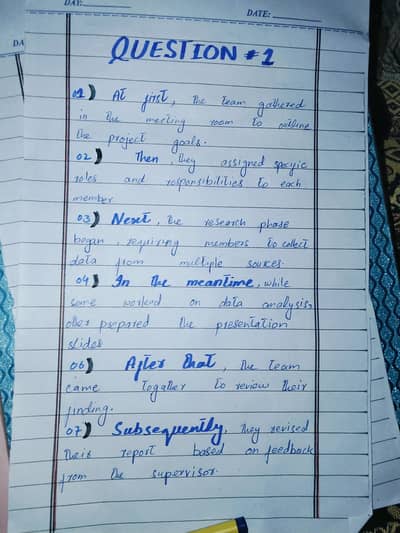 DAY:
DATE:
DA
QUESTION #1
01) At first, the team gathered
in the meeting room to outline
the project goals.
02) Then, they assigned specific
roles and responsibilities to each
member
03) Next, the research phase
began, requiring members to collect
data from multiple sources.
04) In the meantime, while
some worked on data analysis,
other prepared the presentation
slides
06) After that, the team
came together to review their
finding.
07) Subsequently, they revised
their report based on feedback
from the supervisor.